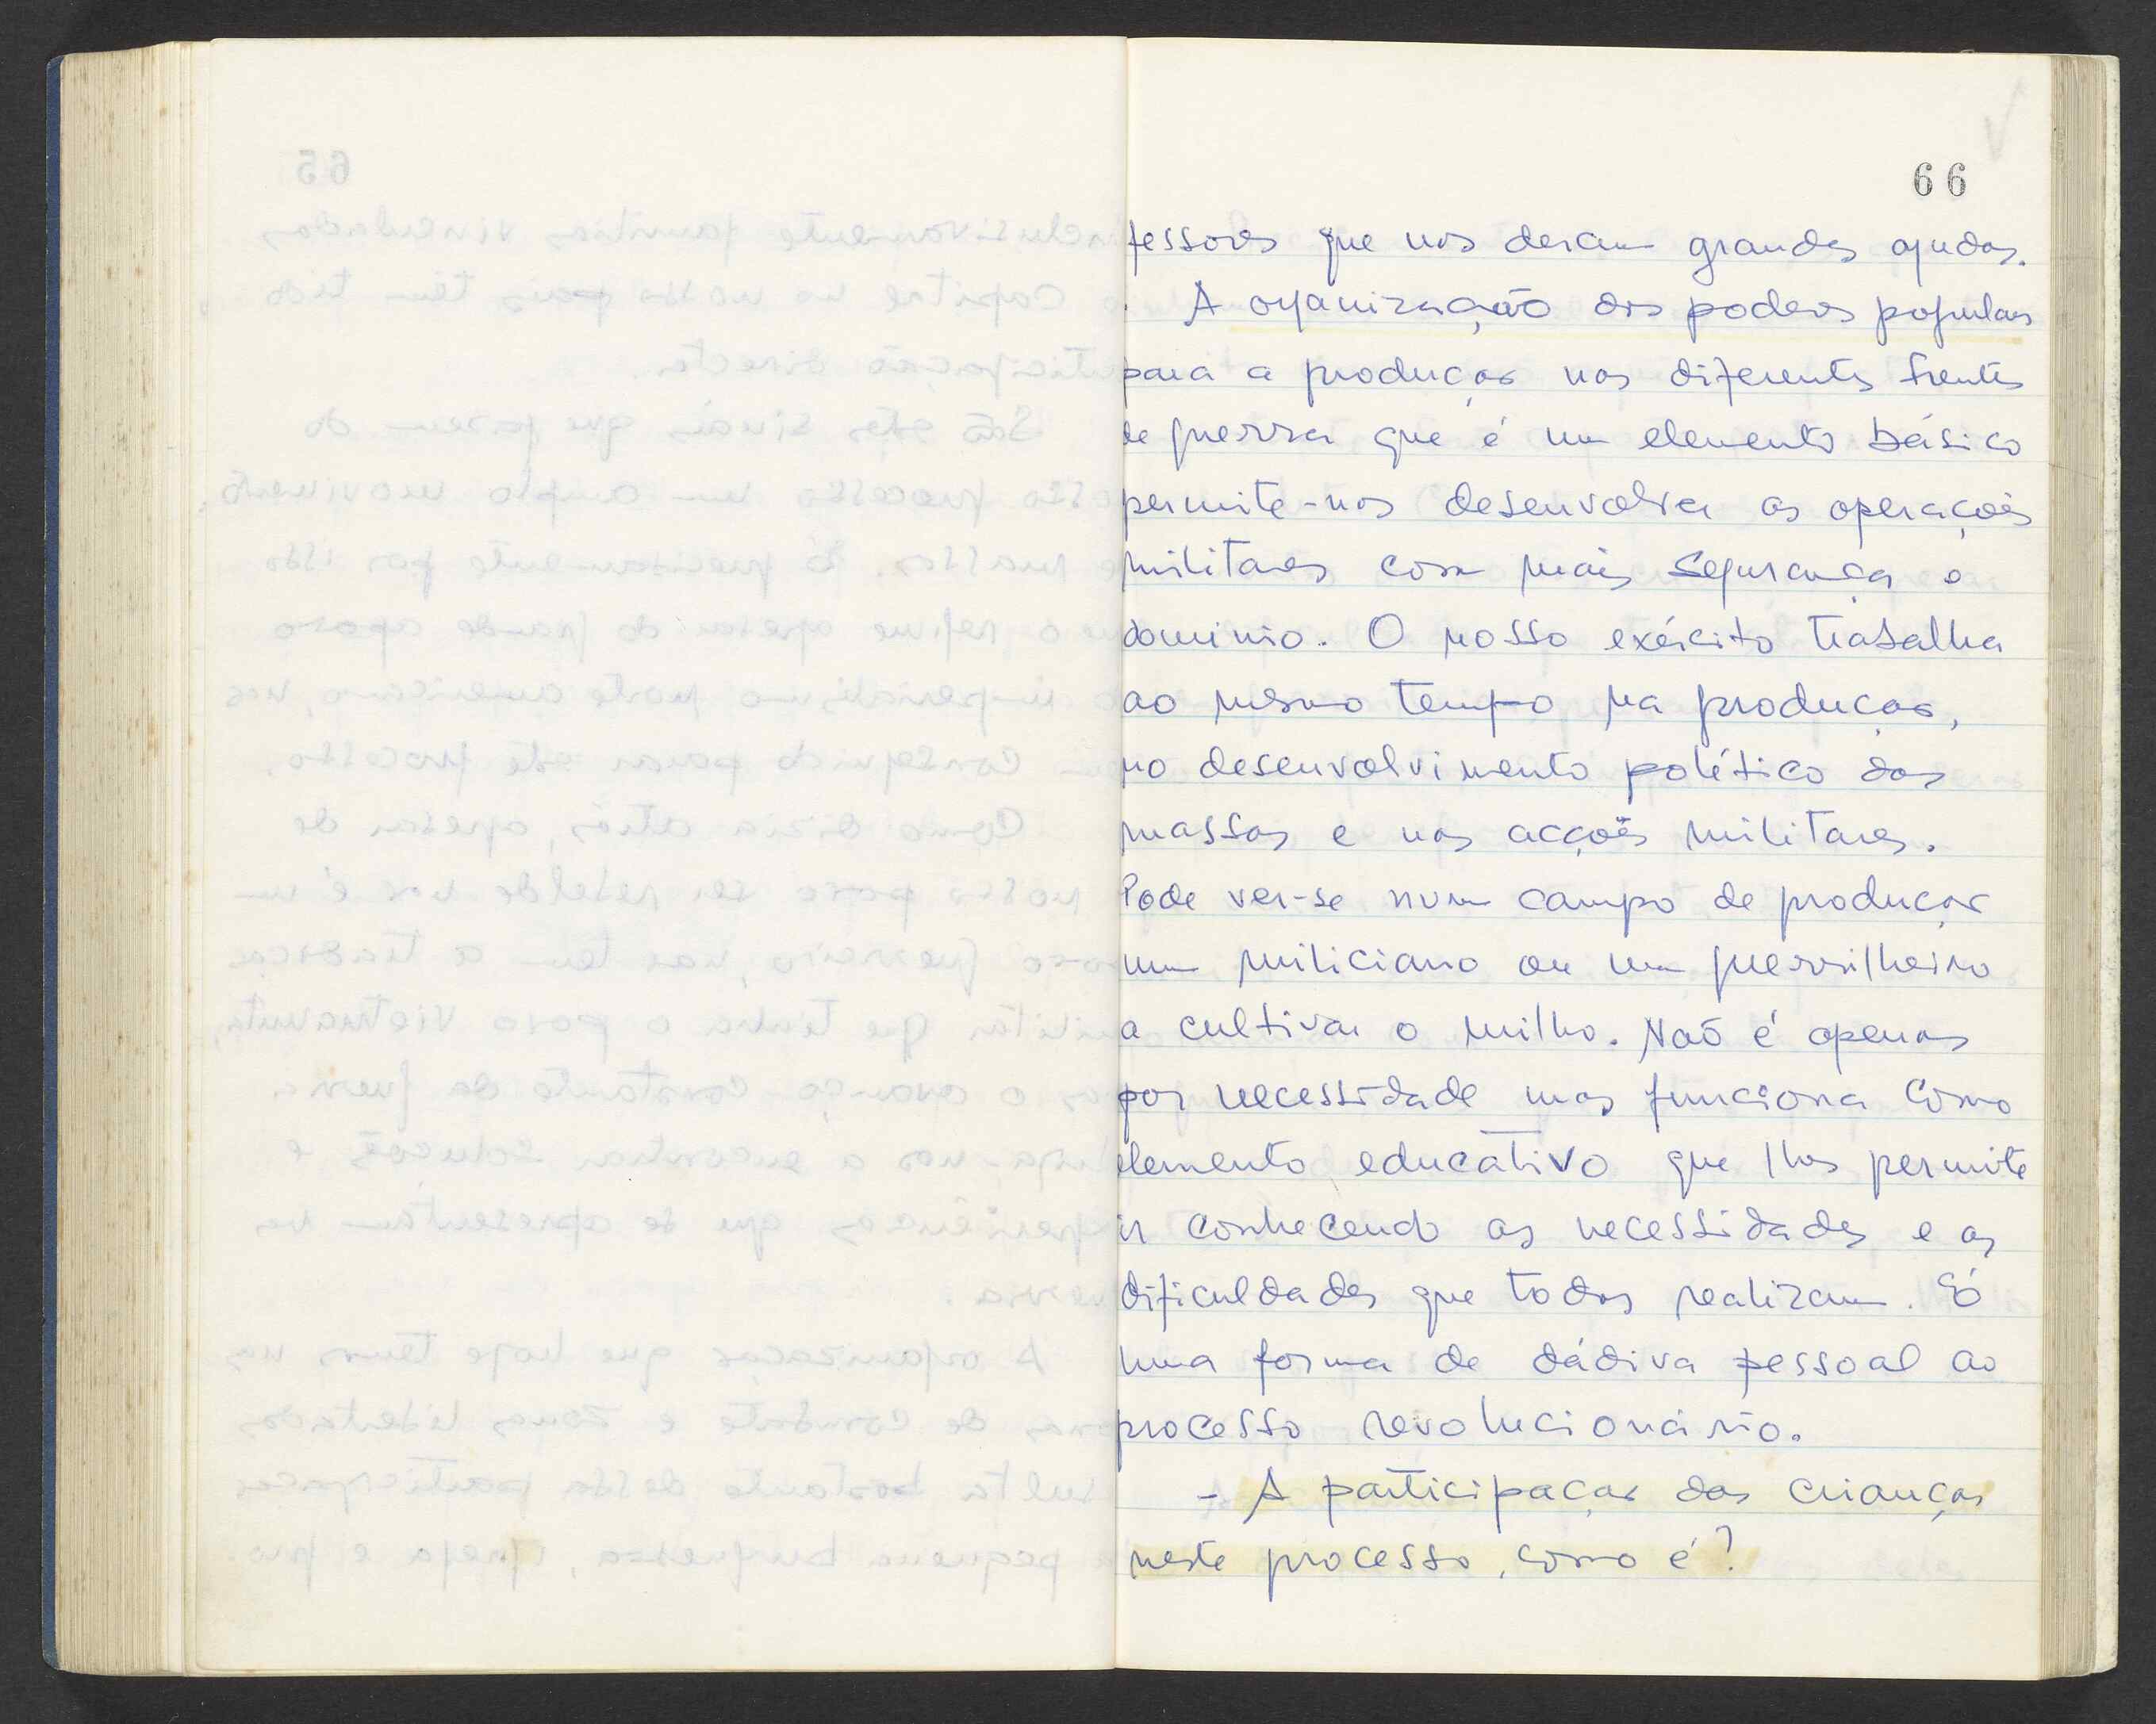 66
fessores que nos deram grandes ajudas.
A organização dos poderes populares
para a produção nas diferentes frentes
de guerra que é um elemento básico
permite-nos desenvolver as operações
militares com mais segurança e
dominio. O nosso exército trabalha
ao mesmo tempo na produção,
no desenvolvimento político das
massas e nas acções militares.
Pode ver-se num campo de produção
um miliciano ou um guerrilheiro
a cultivar o milho. Não é apenas
por necessidade mas funciona como
elemento educativo que lhes permite
ir conhecendo as necessidades e as
dificuldades que todos realizam. É
uma forma de dádiva pessoal ao
processo revolucionário.
- A participação das crianças
neste processo, como é?